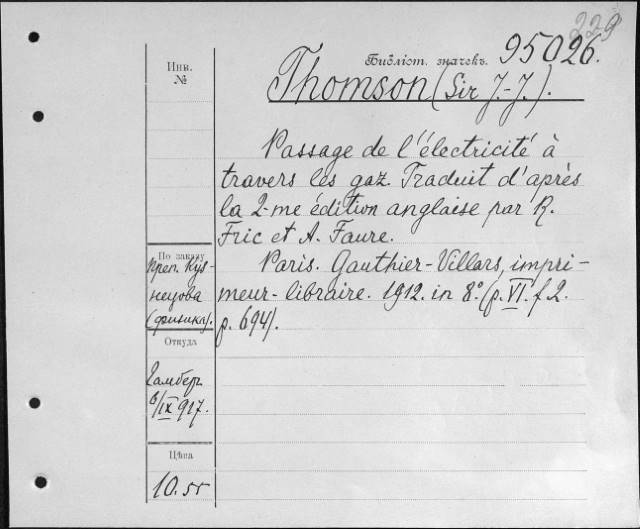 229
Библіот. значекъ. 95026.
Инв.
№
Thomson (Sir J.-J.).
Passage de l'électricité à
travers les gaz. Traduit d'après
la 2-me édition anglaise par R.
Fric et A. Faure.
Paris. Gauthier-Villars, impri-
meur-libraire. 1912. in 8° (p. VI. f. 2.
p. 694).
По заказу
Преп. Куз-
нецова
(физика).
Откуда
Гамбер.
6/IX 917.
Цѣна
10.55